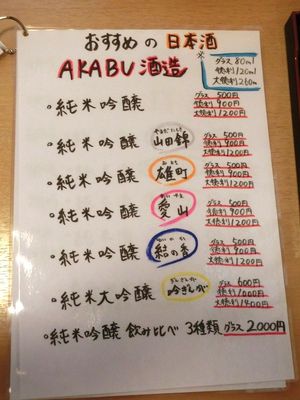 おすすめの 日本酒
AKABU 酒造
グラス 80ml
徳利 120ml
大徳利 260ml
・純米吟醸
グラス 500円
徳利 900円
大徳利 1200円
・純米吟醸 山田錦
やまだにしき
グラス 500円
徳利 900円
大徳利 1200円
・純米吟醸 雄町
おまち
グラス 500円
徳利 900円
大徳利 1200円
・純米吟醸 愛山
あいやま
グラス 500円
徳利 900円
大徳利 1200円
・純米吟醸 結の香
ゆいのか
グラス 500円
徳利 900円
大徳利 1200円
・純米大吟醸 吟ぎんが
ぎんぎんが
グラス 600円
徳利 1000円
大徳利 1400円
・純米吟醸 飲み比べ 3種類 グラス 2000円